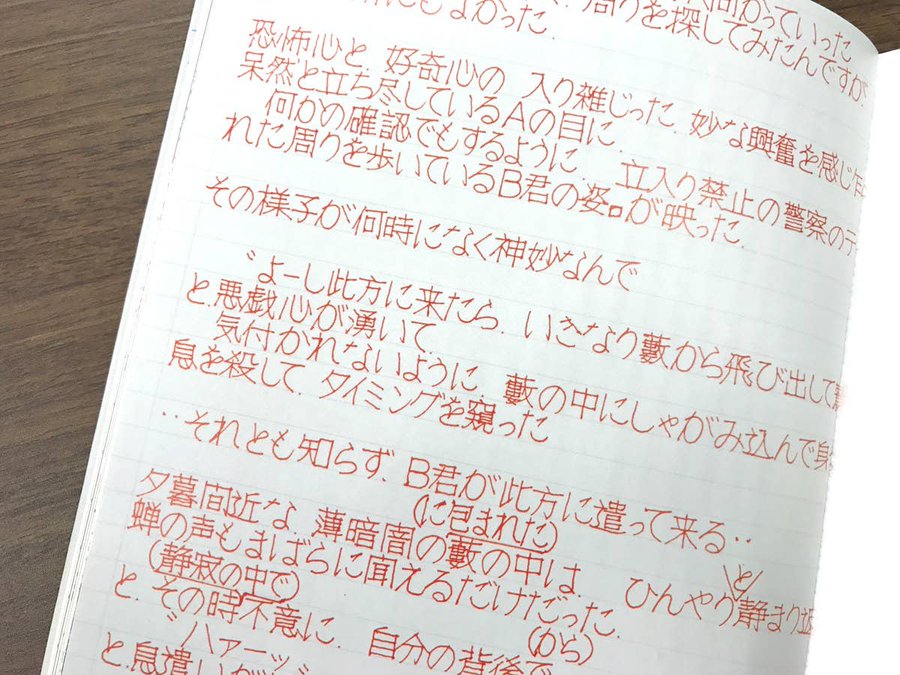 周りを探してみたんですが
にもよかった.
恐怖心と 好奇心の 入り雑じった. 妙な興奮を感じ乍
呆然と立ち尽しているAの目に.
何かの確認でもするように. 立入り禁止の警察のテ
れた周りを歩いているB君の姿が映った.
その様子が何時になく神妙なんで
〝よーし此方に来たら. いきなり藪から飛び出して
と.悪戯心が湧いて.
気付かれないように. 藪の中にしゃがみ込んで身
息を殺して. タイミングを窺った
‥それとも知らず. B君が此方に遣って来る‥
(に包まれた)
夕暮間近な. 薄暗闇の藪の中は ひんやり
と
静まり返
蝉の声もまばらに聞えるだけだった.
(静寂の中で)
(から)
と.その時不意に. 自分の背後で
〝ハァーッ〟
と.息遣いが